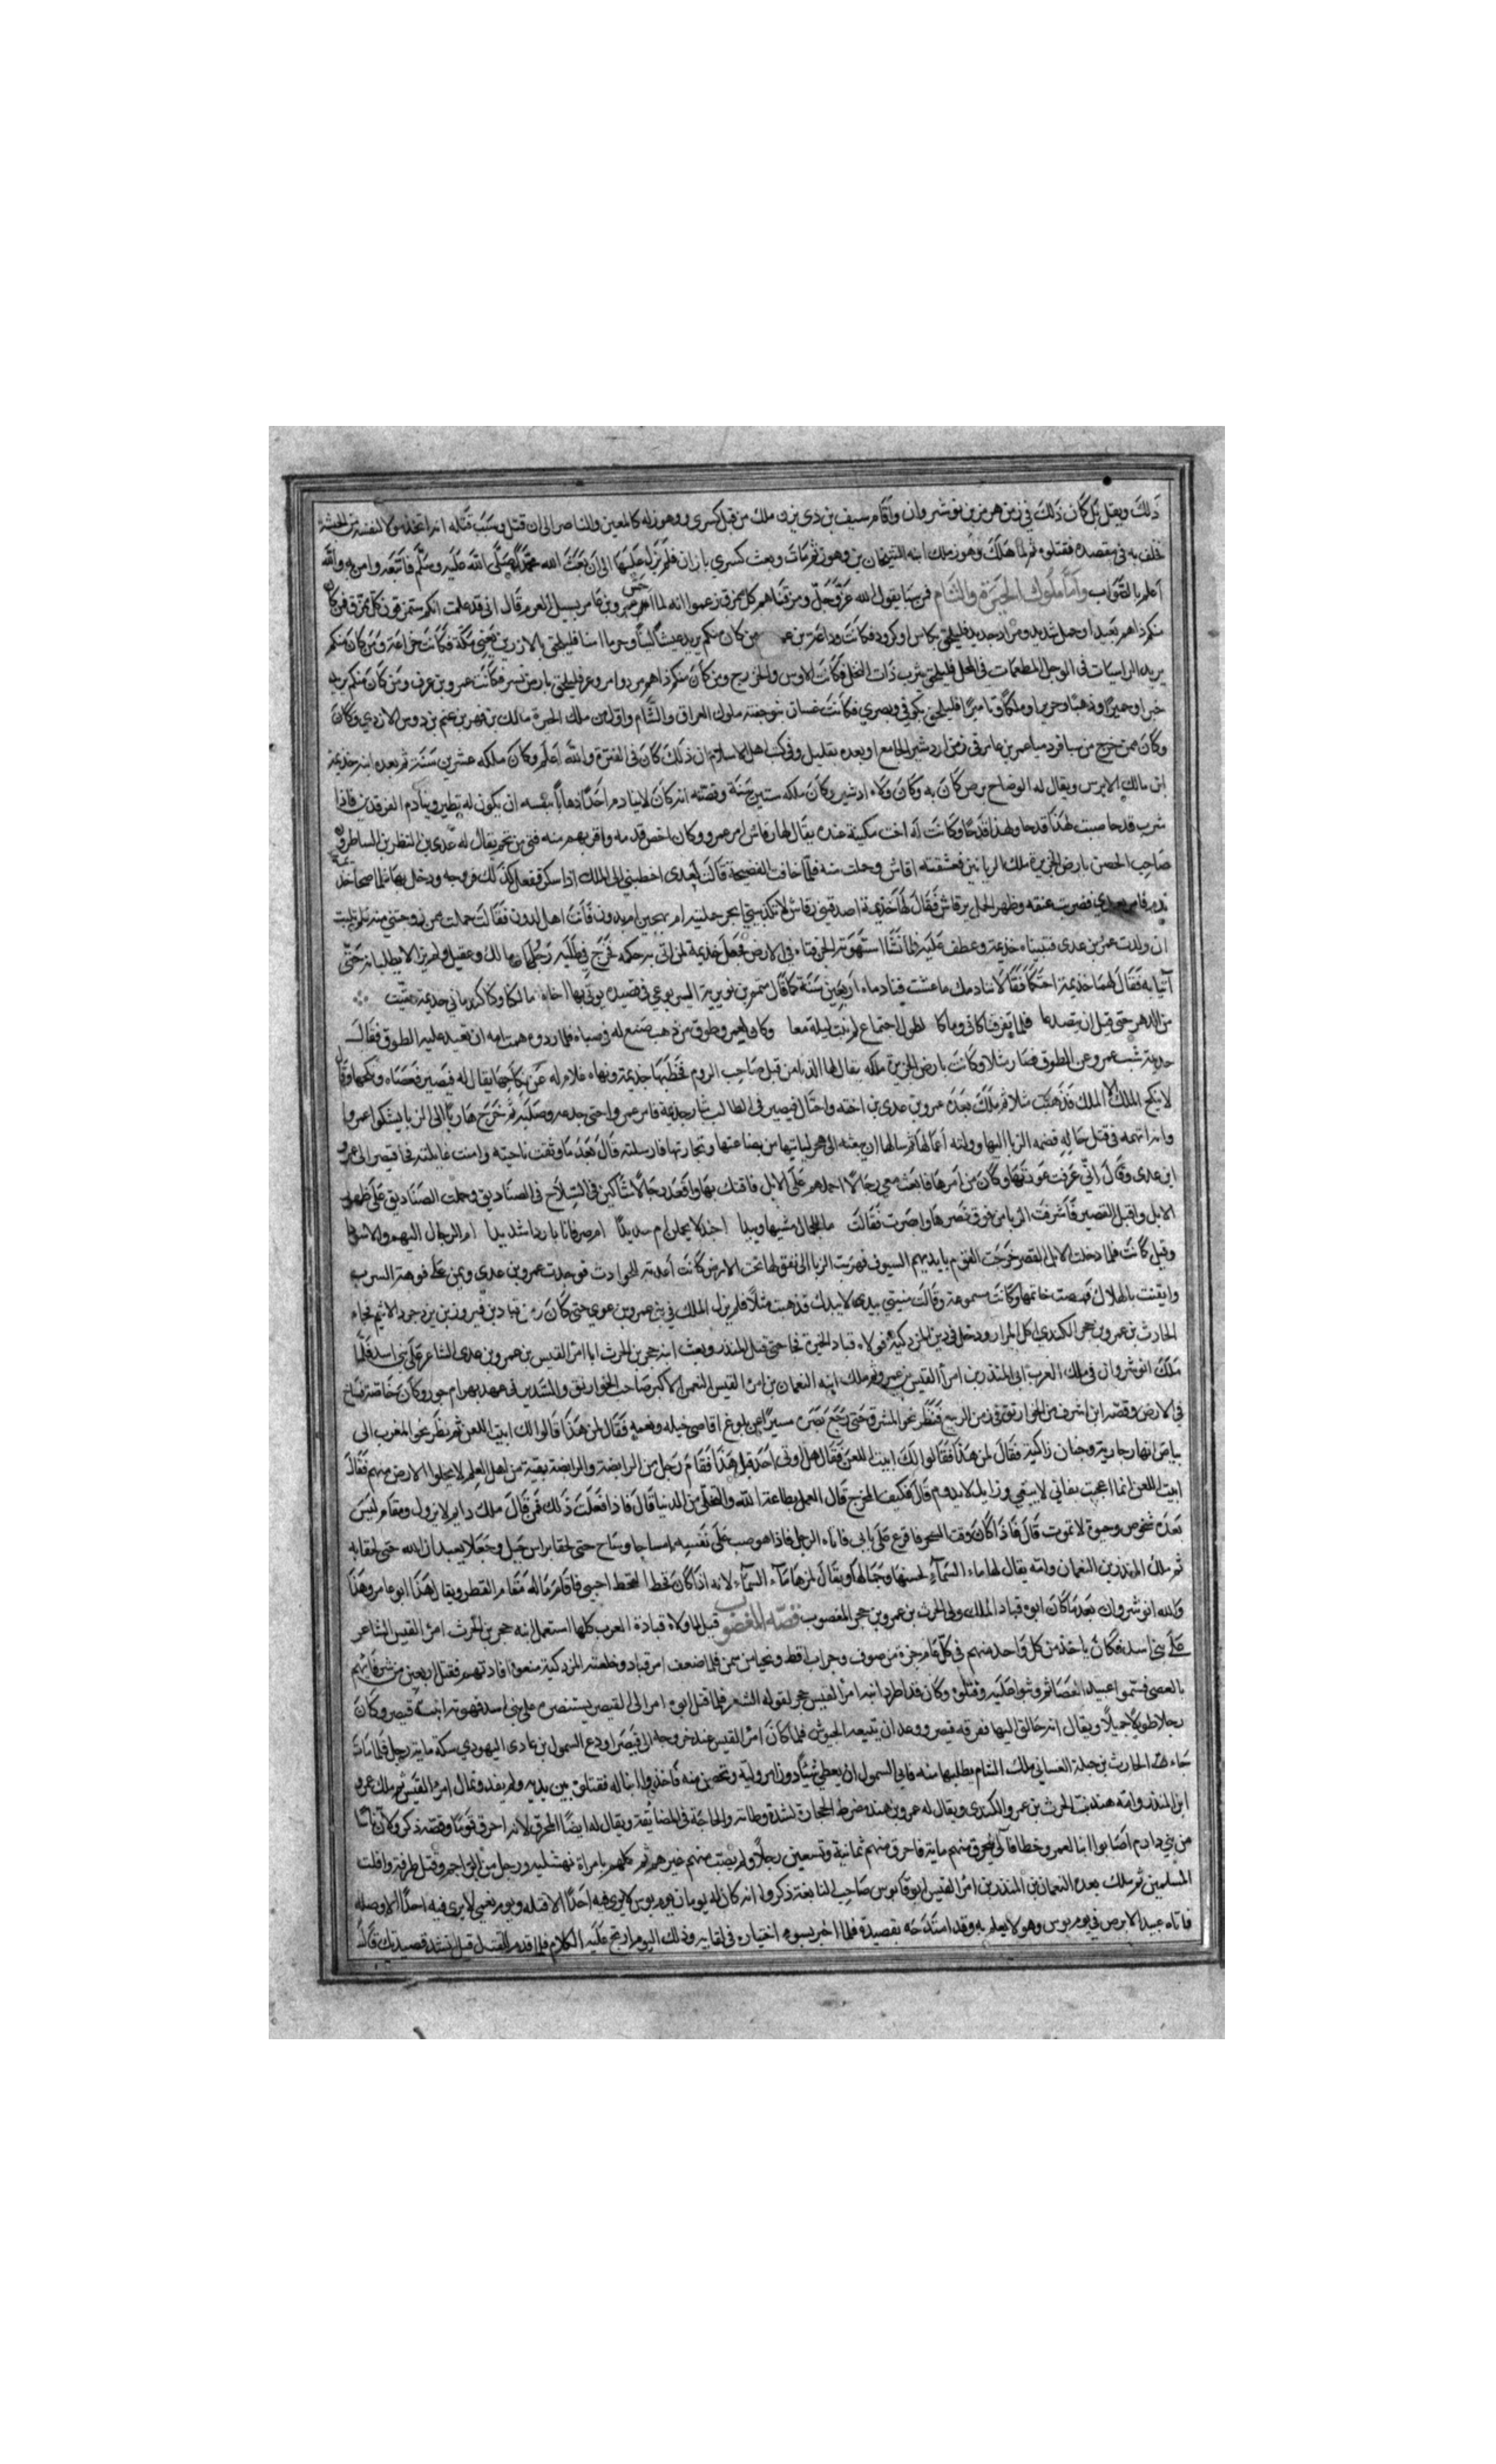 ذلك ويقل بل كان ذلك في زمن هرمز بن نوشروان واقام سيف بن ذي يزن ملك من قبل كسرى ووهوز له كالمعين والناصر الى ان قتل وسبب قتله انه اتخذ
فخلف به في مقصده فقتلوه ثم لما هلك وهوز ملك ابنه بن وهوز ثم مات وبعث كسرى باذان فلم يزل عليها الى ان بعث الله محمدا صلى الله عليه وسلم فاتبعه وامن به والله
اعلم بالصواب واما ملوك الحيرة والشام فرسا يقول الله عز وجل ومزقناهم كل ممزق زعموا انه لما عمرو بن عامر بسيل العرم قال اني قد علمت انكم ستمزقون كل ممزق فمن كان
منكم ذا هم بعيد او جمل شديد ومزاد جديد فليلحق بكاس او كرود فكانت وداعة بن ومن كان منكم يريد عيشا وحرما امنا فليلحق بالازرين يعني مكة فكانت خزاعة ومن كان منكم
يريد الراسيات في الوحل المطعمات في المحل فليلحق بيثرب ذات النخل فكانت الاوس والخزرج ومن كان منكم فليلحق بارض فكانت عمرو بن عوف ومن كان منكم يريد
خبرا وخميرا وذهبا وحريرا وملكا وتاميرا فليلحق بكوفي وبصري فكانت غسان بنو جفنة ملوك العراق والشام واول من ملك الحيرة مالك بن فهم بن غنم بن دوس الازدي وكان
وكان ممن خرج من سبا عمرو بن عامر في زمن اردشير الجامع او بعده بقليل وفي كتب اهل الاسلام ان ذلك كان في الفترة والله اعلم وكان ملكه عشرين سنة ثم بعده ابنه جذيمة
ابن مالك الابرص ويقال له الوضاح برص كان به وكان ولاه اردشير وكان ملكه ستين سنة وقصته انه كان لا ينادم احدا ذهابا بنفسه ان يكون له نظير وينادم الفرقدين فاذا
شرب قدحا صب لهذا قدحا ولهذا قدحا وكانت له اخت مكينة عنده يقال لها رقاش ام عمرو وكان اخص قدمه واقربهم منه فتى من لخم يقال له عدي بن النضر بن الساطرون
صاحب الحصن بارض الجزيرة ملك فعشقته رقاش وحملت منه فلما خاف الفضيحة قالت لعدي اخطبني الى الملك اذا سكر ففعل كذلك فزوجه ودخل بها فلما صحا
فامر بعدي فضربت عنقه وظهر الحمل برقاش فقال لها جذيمة اصدقيني رقاش لا تكذبيني ابحر حملت ام بهجين ام بدون فانت اهل لدون فقالت حملت ممن زوجتني منه فلم تلبث
ان ولدت عمرو بن عدي فتبناه جذيمة وعطف عليه فلما نشا استهوته الجن في الارض فجعل جذيمة لمن اتى به حكمه فخرج في طلبه رجلان مالك وعقيل ولم يزالا يطلبانه حتى
اتيا به فقال لهما جذيمة احتكما فقالا ننادمك ما عشت فنادماه اربعين سنة كما قال متمم بن نويرة اليربوعي في قصيدة يرثي بها اخاه مالكا وكنا كندماني جذيمة حقبة
من الدهر حتى قيل لن يتصدعا فلما تفرقنا كاني ومالكا لطول اجتماع لم نبت ليلة معا وكان لعمرو طوق من ذهب صنع له في صباه فلما ردوه همت امه ان تعيد عليه الطوق فقال
جذيمة شب عمرو عن الطوق فصار مثلا وكانت بارض الجزيرة ملكة يقال لها الزبا من قبل صاحب الروم فخطبها جذيمة ونهاه غلام له عن نكاحها يقال له قصير فعصاه ونكحها وقال
لا ينكح الملك الا الملك فذهبت مثلا ثم ملك بعده عمرو بن عدي بن اخته واحتال قصير في الطالب بثار جذيمة فامر عمرو حتى جدعه وصلبه ثم خرج هاربا الى الزبا يشكوا عمروا
وانه اتهمه في قتل خاله فضمته الزبا اليها وولته اعمالها ثم سالها ان يبعثه الى هجر لياتيها من بضاعتها وتجارتها فارسلته قال بعد ما وثقت ناحيته وامنت غايلته فجا قصير الى عمرو
ابن عدي وقال اني عرفت عورتها وكان من امرها فابعث معي رجالا احملهم على الابل فاقتك بها واقعد رجالا شاكين في السلاح في الصناديق وحملت الصناديق على ظهر
الابل واقبل القصير فاشرفت الزبا من فوق قصرها وابصرت فقالت ما للجمال مشيها وئيدا اجندلا يحملن ام حديدا ام صرفانا باردا شديدا ام الرجال
وقيل كانت فلما دخلت الابل القصر خرجت القوم بايديهم السيوف فهربت الزبا الى نفق لها تحت الارض كانت اعدته للحوادث فوجدت عمرو بن عدي ويمن على فوهة السرب
وايقنت بالهلاك فمصت خاتمها وكانت مسمومة وقالت منيتي بيدي لا بيدك فذهبت مثلا فلم يزل الملك في بني عمرو بن عدي حتى كان زمن قباد بن فيروز بن يزدجرد الاثيم فجاء
الحارث بن عمرو بن حجر الكندي اكل المرار ودخل في دين المزدكية فولاه قباد الحيرة فجا حتى قتل المنذر وبعث ابنه حجر بن الحرث ابا امرئ القيس بن عمرو بن عدي الشاعر على بني اسد فلما
ملك انوشروان في ملك العرب ابي المنذر بن امرأ القيس بن عمرو ثم ملك ابنه النعمان بن امرئ القيس الاكبر صاحب الخوارنق والسدير في عهد بهرام جور وكان
في الارض وقصته انه اشرف من الخوارنق في زمن الربيع فنظر نحو المشرق حتى رجع بصره حسيرا عن بلوغ اقاصي خيله ونعمه فقال لمن هذا قالوا لك ابيت اللعن ثم نظر نحو المغرب الى
بياض انهار جارية وجنان زاكية فقال لمن هذا فقالوا لك ابيت اللعن فقال هل اوتي احد مثل هذا فقام رجل من الرابضة والرابضة بقية من اهل العلم لا يخلوا الارض منهم فقال
ابيت اللعن انما اعجبت بفاني لا يبقى وزايل لا يدوم قال فكيف المخرج قال العمل بطاعة الله والتخلي من الدنيا قال فاذا فعلت ذلك فمه قال ملك دايم لا يزول ومقام ليس
بعده شخوص وحيوة لا تموت قال فاذا كان وقت السحر فاقرع علي بابي فاتاه الرجل فاذا هو صب على نفسه امساحا وساح حتى لحقا براس جبل وجعلا يعبدان الله حتى لحقا به
ثم ملك المنذر بن النعمان وامه يقال لها ماء السماء لحسنها وجمالها ويقال لمزها ماء السماء لانه اذا كان قحط القحط احتبى فاقام ماله مقام القطر ويقال لهذا ابو عامر وهذا
ولاه انوشروان بعد ما كان ابوه قباد الملك ولى الحرث بن عمرو بن حجر المغصوب قصه المغضوب قيل لما ولاه قباد العرب كلها استعمل ابنه حجر بن الحرث امرئ القيس الشاعر
على بني اسد فكان ياخذ من كل واحد منهم في كل عام جزة من صوف وجراب اقط ونحيا من سمن فلما ضعف امر قباد وخلعته المزدكية منعوا اتاوتهم فقتل اربعين من شرفائهم
بالعصى فسموا عبيد العصا ثم وثبوا عليه وقتلوه وكان قد اطرد ابنه امرأ القيس حجر لقوله الشعر فلما قتل ابوه امر الى القيصر يستنصره على بني اسد فهويته ابنة قيصر وكان
رجلا طويلا جميلا ويقال انه خالق اليها فعرفه قيصر ووعد ان يتبعه الجيوش فلما كان امرئ القيس عند خروجه الى قيصر اودع السمول بن عادى اليهودي سكة ماية رجل فلما مات
جاءه الحارث بن جبلة الغساني ملك الشام يطلبها منه فابى السمول ان يعطي شيئا دون اهل وليه وتحصن منه فاخذوا ابنا له فقتلوه بين يديه ولم يفد وتمال امرئ القيس ثم ملك عمرو
ابن المنذر وامه هند بنت الحرث بن عمرو الكندي ويقال له عمرو بن هند مضرط الحجارة لشدة وطاته والحاحه في المضايقة ويقال له ايضا المحرق لانه احرق قوما وقصته ذكر وكان ناسا
من بني دارم اصابوا ابنا لعمرو خطا فآلى ليحرق منهم ماية فاحرق منهم ثمانية وتسعين رجلا ولم يصب منهم غيرهم ثم كلهم بامراة نهشلية ورجل من البراجم وقتل طرفة وافلت
المتلمس ثم ملك بعده النعمان بن المنذر بن امرئ القيس ابو قابوس صاحب النابغة ذكروا انه كان له يومان يوم بوس لا يرى فيه احدا الا قتله ويوم نعيم لا يرى فيه احدا الا وصله
فاتاه عبيد الابرص في يوم بوس وهو لا يعلم به وقد امتدحه بقصيدة فلما اخبر بسوء اختياره في لقايه وذلك اليوم ارتج عليه الكلام فلما قدم للقتل قيل له انشد قصيدتك قال